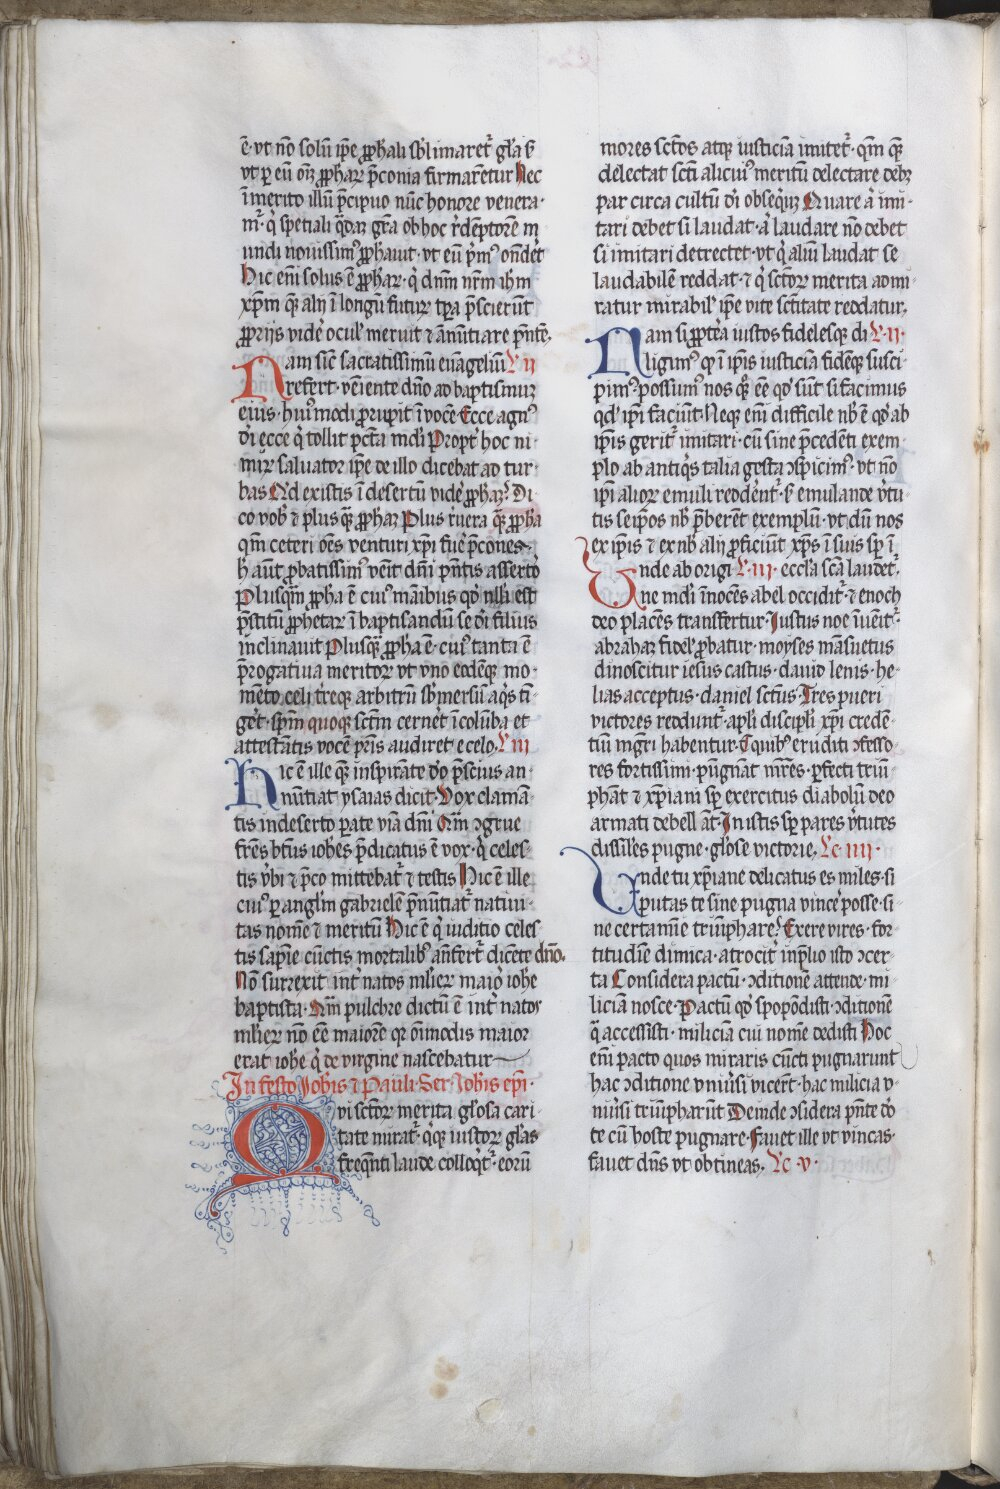 ē· vt nō solū ip̄e ꝓph̄ali sb̓limaret᷑ gl̓a s̄
vt ꝑ eū om̄ꝫ ꝓph̄aꝝ p̄conia firmarētur Nec
īmerito illū p̄cipuo nūc honore venera-
m᷑· q̇ spetiali q̄daꝫ gr̄a ob hoc r̓dēptorē m
undi nouissim⁹ ꝓph̄auit· vt eū p̓m⁹ ondēt
Hic eni solus ē ꝓph̄aꝝ· q̇ dnm̄ nrm̄ ih̄m
xp̄m q̄ꝫ alij ī longū futuꝝ tꝑa p̄scierūt
ꝓprijs vidē ocul̓ meruit ⁊ ānūtiare p̄ntē·
Nam sic̄ sacratissimū euāgeliū L· ij
refert· vēiente dn̄o ad baptismuꝫ
eius· hui⁹modi prupit ī vocē Ecce agn⁹
di ecce q̇ tollit pctā mdi Propt̓ hoc ni-
miꝝ saluator ip̄e de illo dicebat ad tur-
bas Qd existis ī desertū vidē ꝓph̄aꝫ? Di
co vob̓ ⁊ plus q̄ꝫ ꝓph̄aꝫ Plus r̓uera q̄ꝫ ꝓph̄a
qm̄ ceteri oēs venturi xp̄i fuē p̄cones·
h̓ aūt ꝓbatissim⁹ vēit dn̄i p̄ntis assertor̓
Plusq̄ꝫ ꝓph̄a ē cui⁹ manibus qd̓ nlli est
p̄stitū ꝓph̄etaꝝ ī baptisandū se di filius
inclinauit Plusq̄ꝫ ꝓph̄a ē· cui⁹ tanta ē
p̄rogatiua meritoꝝ vt vno eodēqꝫ mo-
mēto celi t̓reqꝫ arbitrū sb̓mersū aq̇s tī-
gēt· sp̄m quoqꝫ sctm̄ cernēt ī colūba et
attestātis vocē pr̄is audiret e celo· L· iij
Hic ē ille q̄ꝫ inspirāte do p̄scius an-
nūtiat ysaias dicit· Vox clamā-
tis in deserto parate viā dn̄i Qm̄ ꝯgrue
fr̄es bt̄us ioh̄es p̄dicatus ē vox· q̇ celes-
tis v̓bi ⁊ p̄co mittebat᷑ ⁊ testis Hic ē ille
cui⁹ ꝑ angl̄m gabrielē p̄nūtiat᷑ natiui-
tas nomē ⁊ meritū Hic ē q̇ iuditio celes-
tis sapīe cūctis mortalib⁹ anfert᷑ dicēte dn̄o·
Nō surrexit int̓ natos mlieꝝ maior̓ ioh̄e
baptista· Qm̄ pulchre dictū ē int̓ natos
mlieꝝ nō eē maiorē qꝛ om̄imodis maior
erat ioh̄e q̇ de virgine nascebatur
In festo Ioh̄is ⁊ Pauli· Ser̄ Ioh̄is ep̄i·
Qvi sctoꝝ merita gl̓osa cari-
tate mirat᷑· q̇qꝫ iustoꝝ gl̓as
freq̄nti laude colloq̇t᷑· eorū
mores sctōs atqꝫ iusticiā imitet᷑· qm̄ q̄ꝫ
delectat scti alicui⁹ meritū delectare debꝫ
par circa cultū di obseq̇uꝫ Quare a᷑ imi-
tari debet si laudat· a᷑ laudare nō debet
si imitari detrectet· vt q̇ aliū laudat se
laudabilē reddat· ⁊ q̇ sctoꝝ merita admi-
ratur mirabil̓ ip̄e vite sctitate reddatur·
Nam si ꝓpt̓ea iustos fidelesqꝫ di- L· ij·
ligim⁹ qꝛ ī ip̄is iusticiā fidēqꝫ susci-
pim⁹· possum⁹ nos qꝫ eē qd̓ sūt si facimus
qd̓ ip̄i faciūt· Neqꝫ eni difficile nb̓ ē qd̓ ab
ip̄is gerit᷑ imitari· cū sine p̄cedēti exem-
plo ab antiq̇s talia gesta ꝯspicim⁹· vt nō
ip̄i alioꝝ emuli reddēnt᷑· s̄ emulande v̓tu-
tis seip̄os nb̓ p̄berēt exemplū· vt dū nos
ex ip̄is ⁊ ex nb̓ alij ꝓficiūt xp̄s ī suis sꝑ ī
Vnde ab origi- L· iij· eccl̓a scā laudet᷑·
ne mdi īnocēs abel occidit᷑· ⁊ enoch
deo placēs transfertur· Iustus noe īuēit᷑·
abrahaꝫ fidel̓ ꝓbatur· moyses māsuetus
dinoscitur iesus castus· dauid lenis· he-
lias acceptus· daniel sctūs· Tres pueri
victores reddunt᷑· apl̓i discipl̓i xp̄i credē-
tiū mgr̄i habentur· E quib⁹ eruditi ꝯfesso-
res fortissimi· pūgnāt mr̄es· ꝑfecti triū-
phāt ⁊ xp̄iani sꝑ exercitus diabolū deo
armati debellāt· In istis sꝑ pares v̓tutes
dissil̓es pugne· gl̓ose victorie· Lc̄ iiij·
Vnde tu xp̄iane delicatus es miles· si
putas te sine pugna vincē posse· si-
ne certamīe triūphare? Exere vires· for-
titudīe dimica· atrocit᷑ in p̄lio isto ꝯcer-
ta Considera pactū· ꝯditionē attende· mi-
liciā nosce· Pactū qd̓ spopōdisti· ꝯditionē
q̄ accessisti· miliciā cui nomē dedisti Hoc
eni pacto quos miraris cūcti pugnarunt
hac ꝯditione vniūsi vicerūt· hac milicia v-
niūsi triūpharūt Deinde ꝯsidera p̄nte do
te cū hoste pugnare· Fauet ille vt vincas·
fauet dn̄s vt obtineas· Lc̄ v·